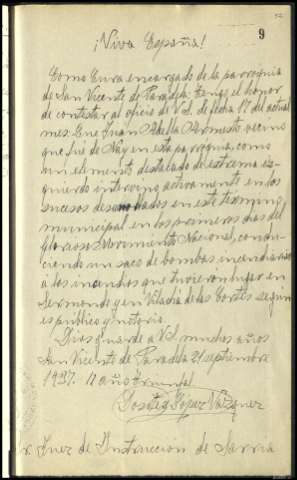 9
¡Viva España!
Como Cura encargado de la parroquia
de San Vicente de Paradela, tengo el honor
de contestar al oficio de V.S. de fecha 17 del actual
mes: Que Juan Abella Armesto vecino
que fué de Nay en esta parroquia, como
un elemento destacado de extrema iz-
quierda intervino activamente en los
sucesos desarrollados en este término
municipal en los primeros dias del
glorioso Movimiento Nacional, condu-
ciendo un saco de bombas incendiarias
a los incendios que tuvieron lugar en
Sermonde y en Vilachá de las Cortes segun
es público y notorio.
Dios guarde a V.S. muchos años
San Vicente de Paradela 21 septiembre
1937. II año triunfal
López Vázquez
Sr. Juez de Instruccion de Sarria